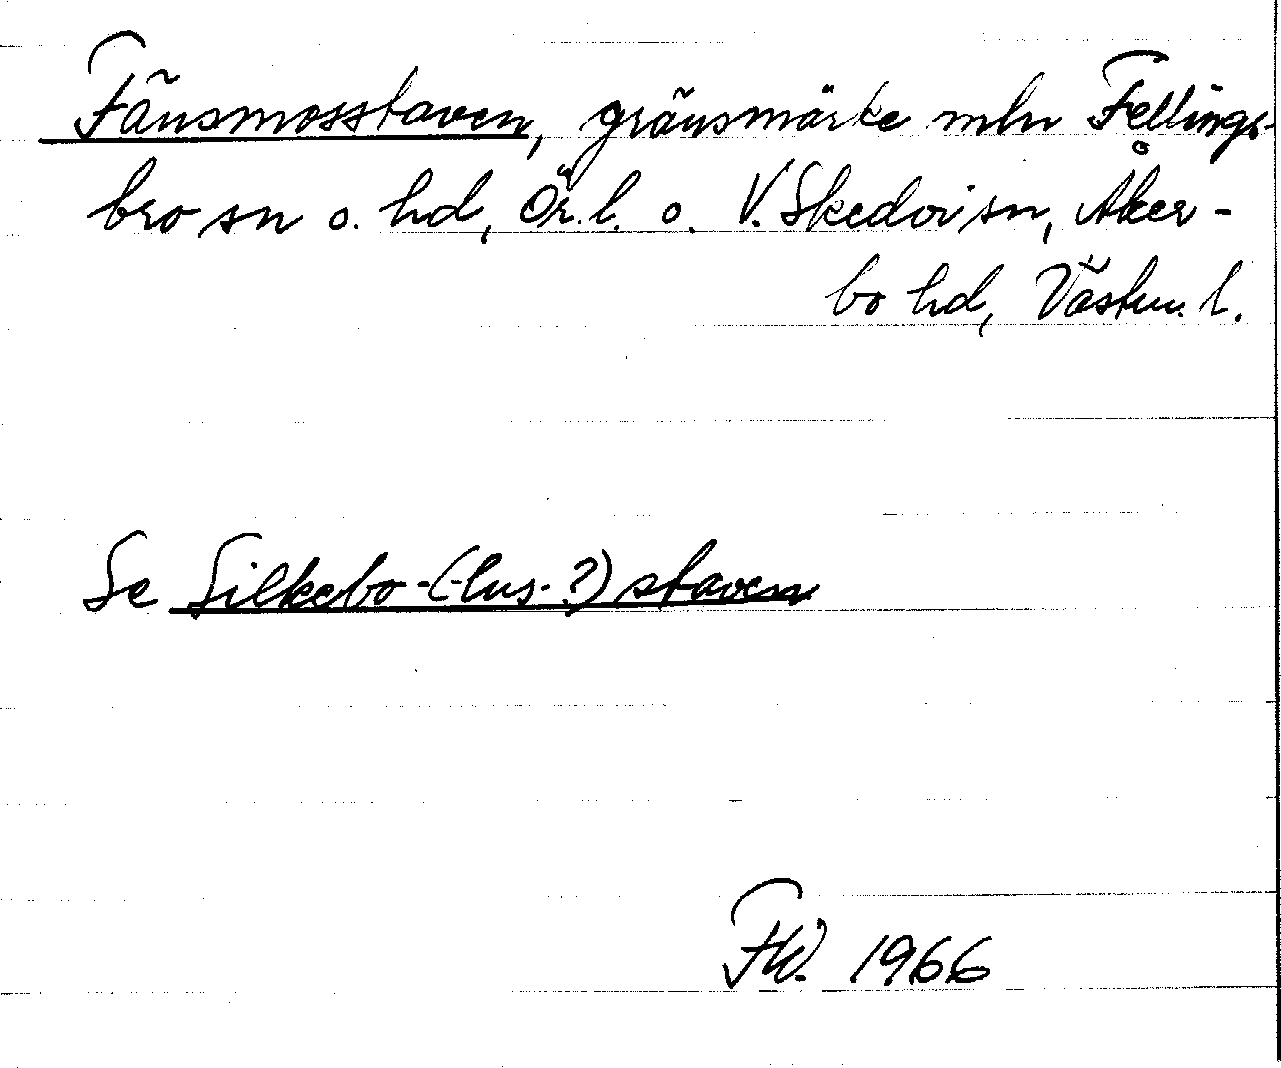 Fänsmosstaven, gränsmärke mln Fellings-
bro sn o. hd, Ör. l. o. V. Skedvi sn, Åker-
bo hd, Västm. l.
Se Silkebo-(-lus-?) staven
FW. 1966